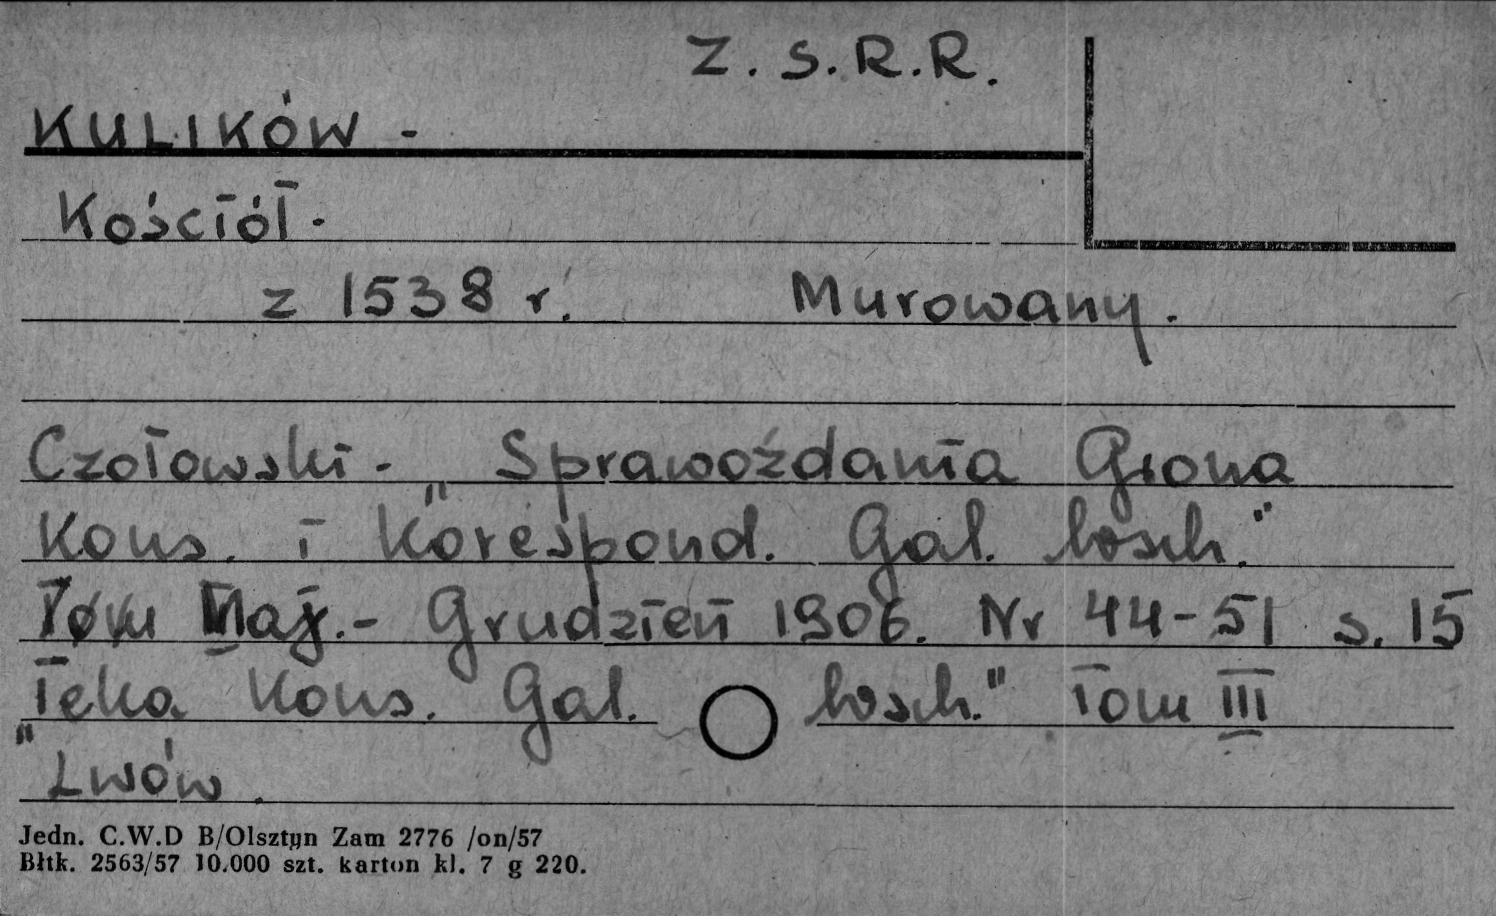 Z. S. R. R.
KULIKÓW -
Kościół.
z 1538 r. Murowany.
Czołowski - „Sprawoździania Grona
Kons. i Korespond. Gal. wsch."
Maj. - Grudzień 1906. Nr 44-51 s. 15
„Teka Kons. Gal. wsch." Tom III
Lwów.
Jedn. C.W.D B/Olsztyn Zam 2776 /on/57
Błtk. 2563/57 10.000 szt. karton kl. 7 g 220.